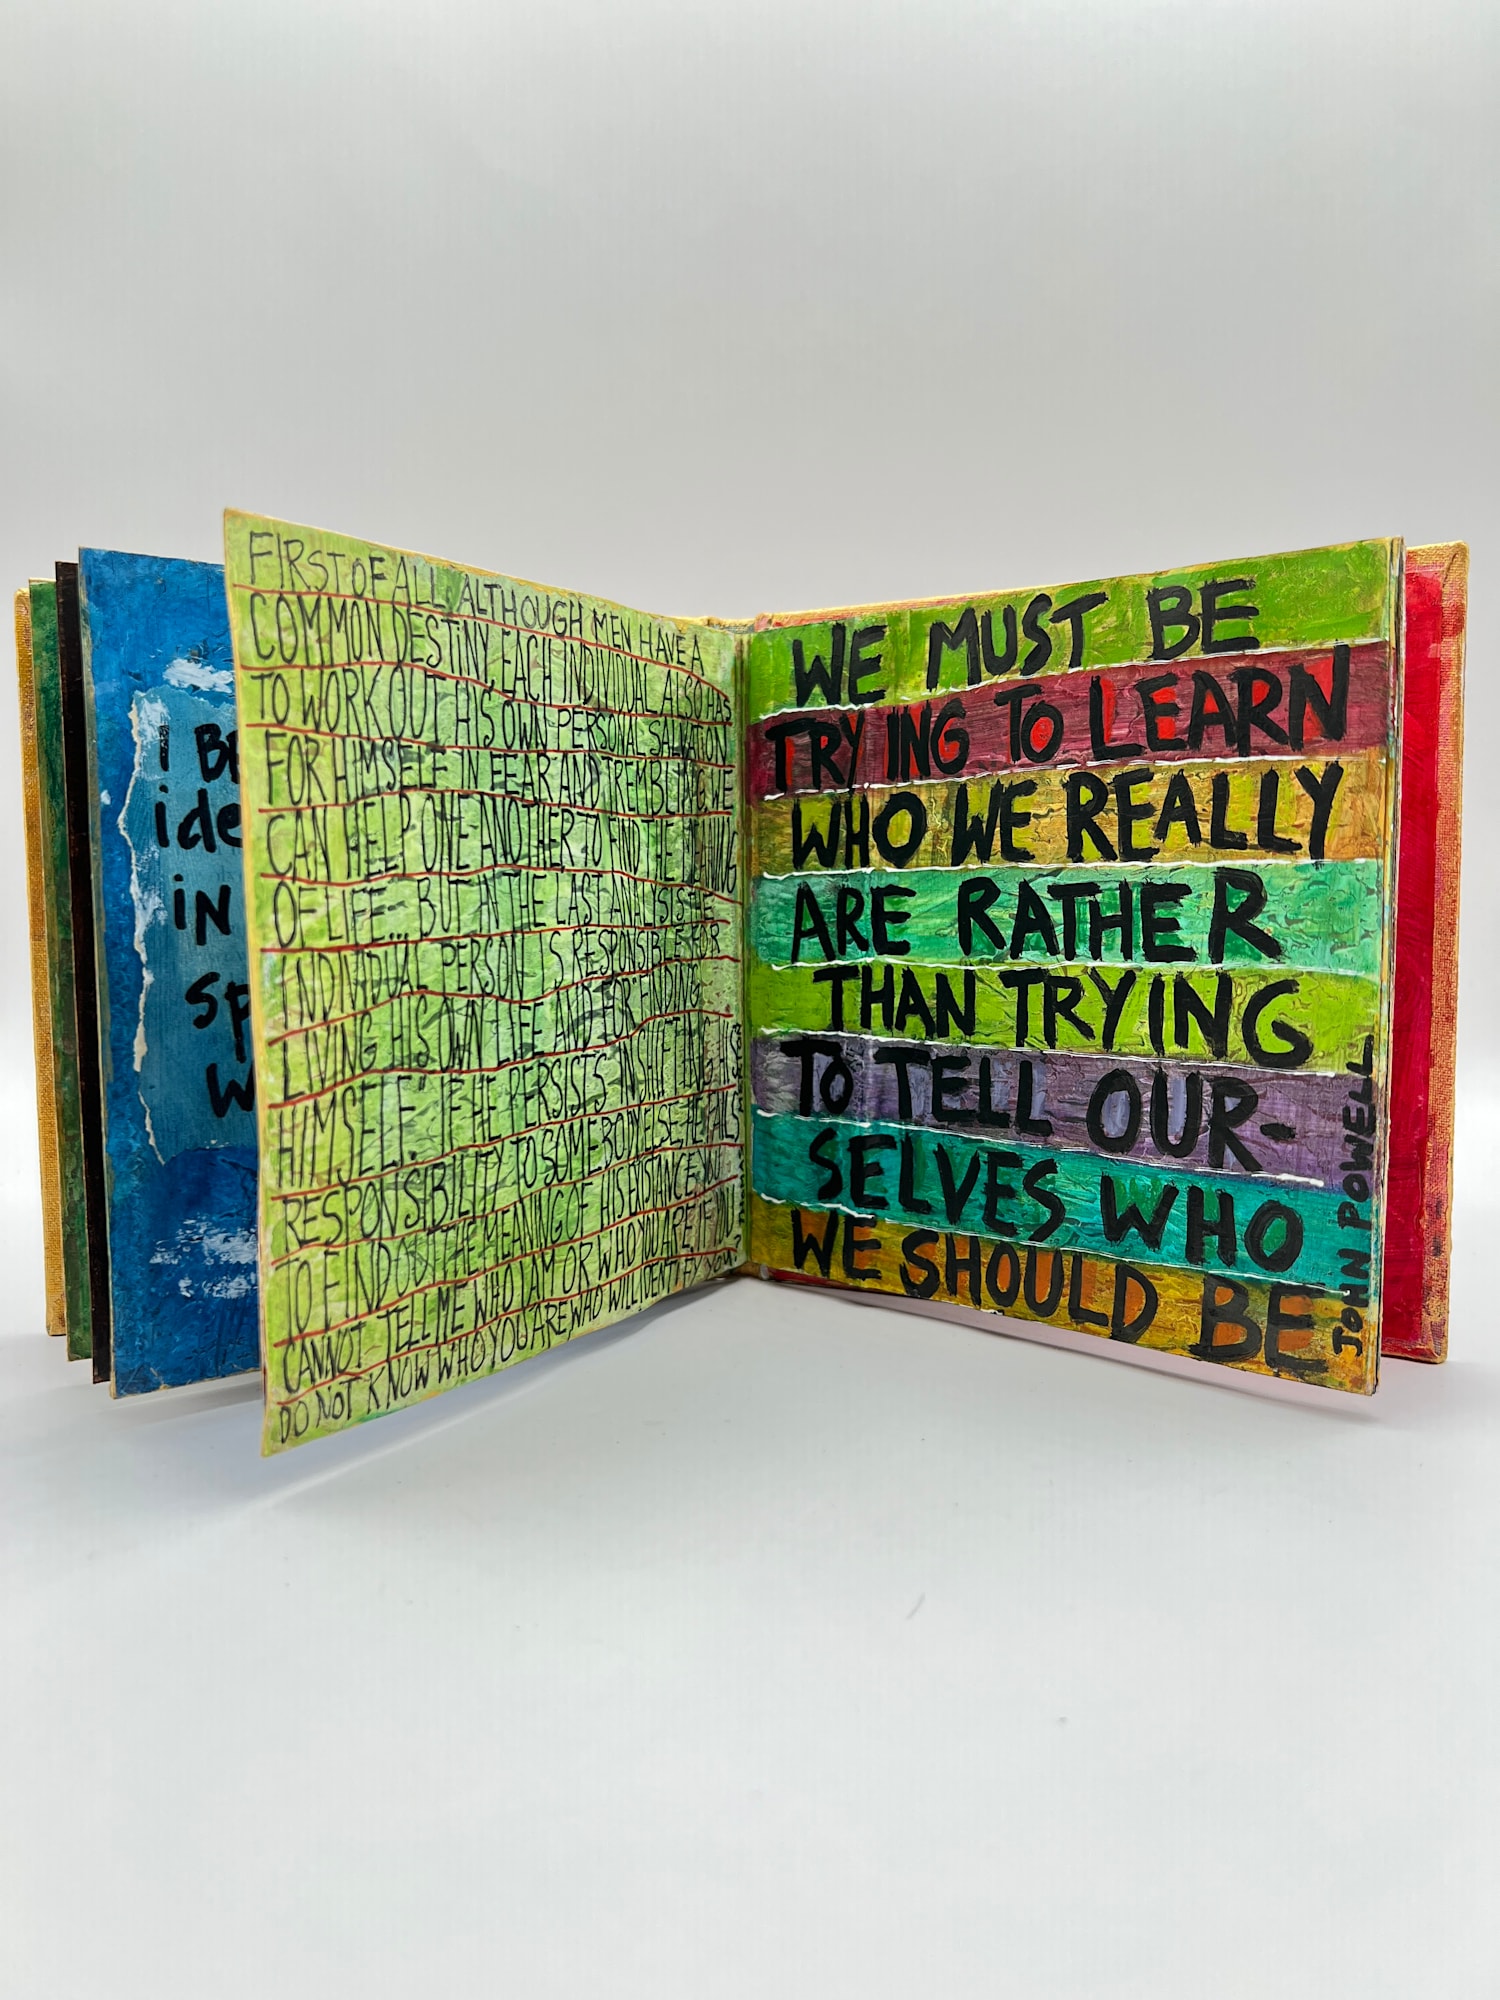 I B
ide
iN
sp
W
FIRST OF ALL, ALTHOUGH MEN HAVE A
COMMON DESTINY, EACH INDIVIDUAL ALSO HAS
TO WORK OUT HIS OWN PERSONAL SALVATION
FOR HIMSELF IN FEAR AND TREMBLING. WE
CAN HELP ONE ANOTHER TO FIND THE MEANING
OF LIFE... BUT IN THE LAST ANALYSIS THE
INDIVIDUAL PERSON IS RESPONSIBLE FOR
LIVING HIS OWN LIFE AND FOR "FINDING
HIMSELF." IF HE PERSISTS IN SHIFTING HIS
RESPONSIBILITY TO SOMEBODY ELSE, HE FAILS
TO FIND OUT THE MEANING OF HIS EXISTANCE. YOU
CANNOT TELL ME WHO I AM OR WHO YOU ARE. IF YOU
DO NOT KNOW WHO YOU ARE, WHO WILL IDENTIFY YOU?
WE MUST BE
TRYING TO LEARN
WHO WE REALLY
ARE RATHER
THAN TRYING
TO TELL OUR-
SELVES WHO
WE SHOULD BE
JOHN POWELL